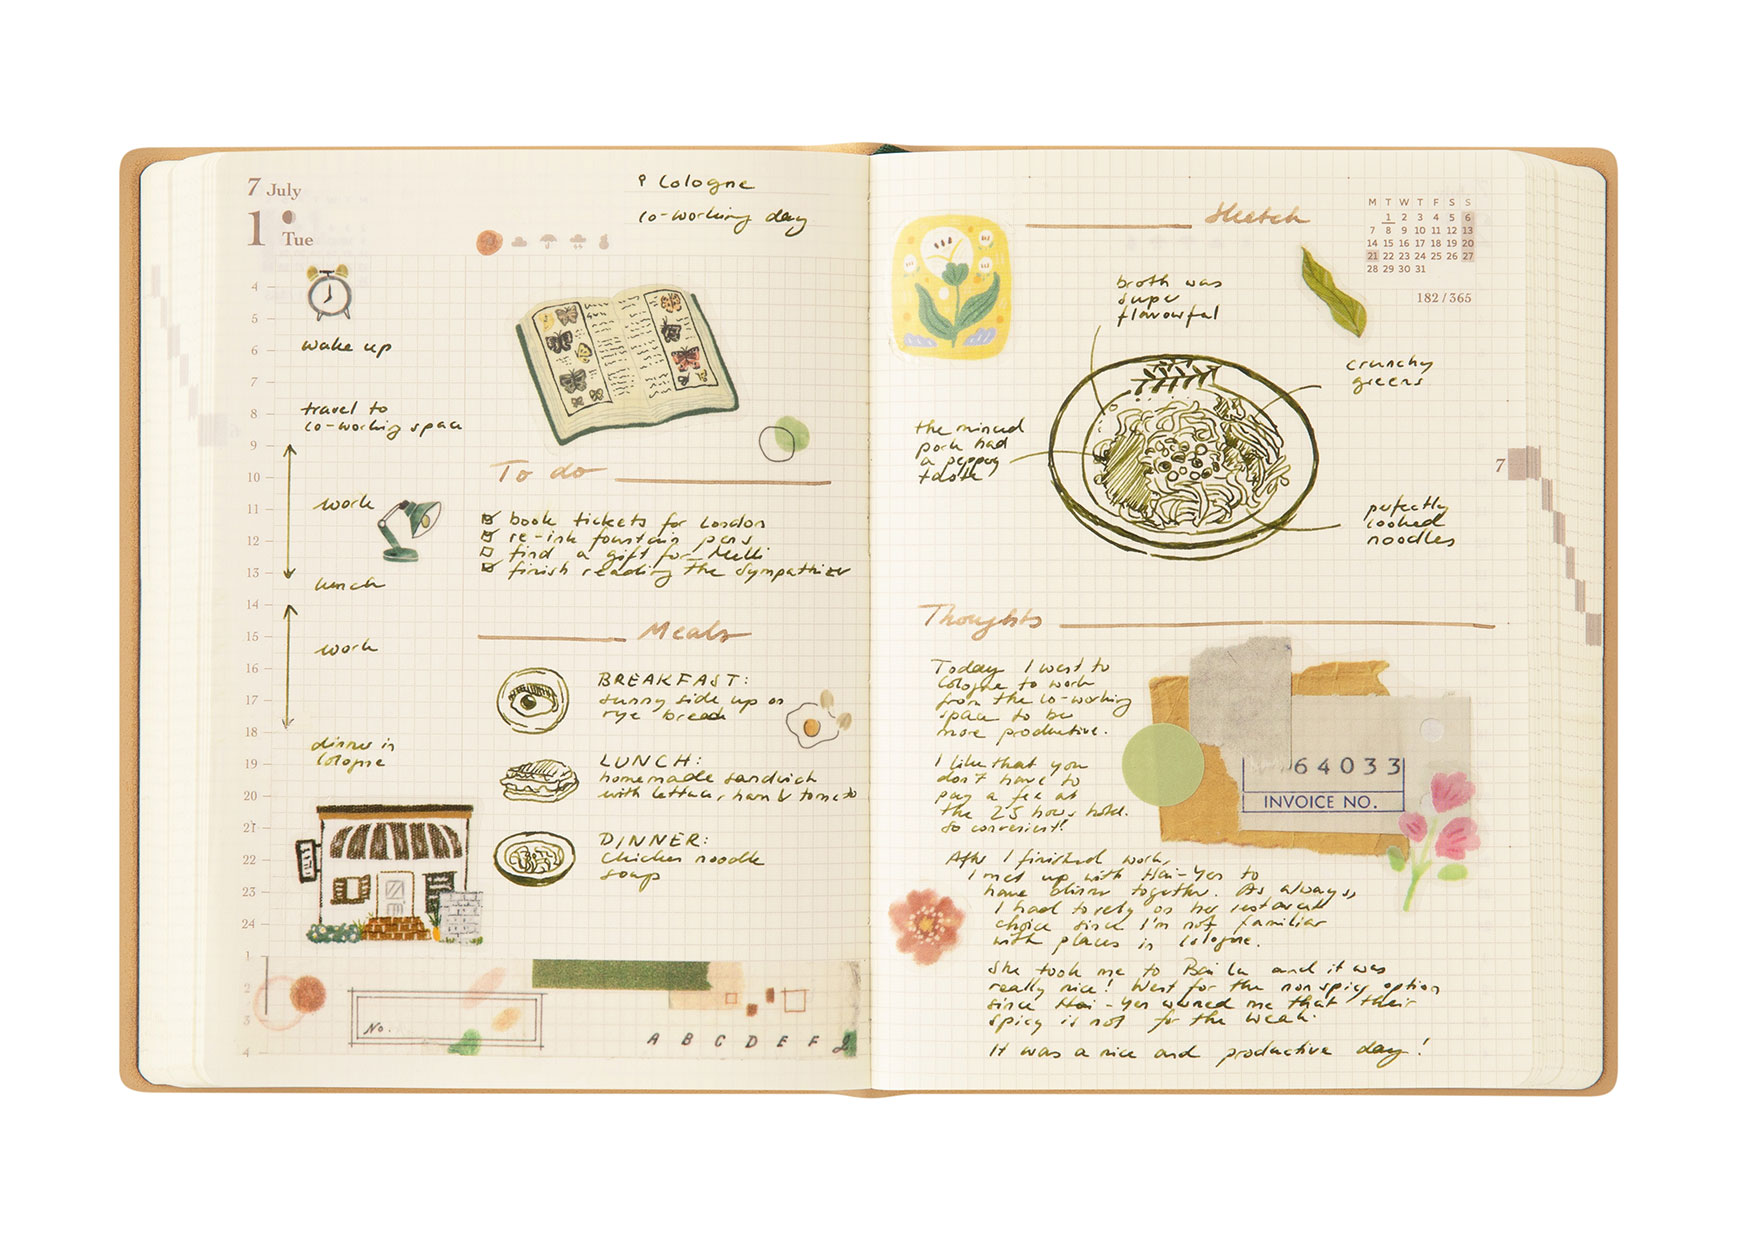 7 July
1 Tue
Cologne
co-working day
4
wake up
5
6
7
travel to
co-working space
8
9
10
work
11
12
13
lunch
14
15
work
16
17
18
dinner in
Cologne
19
20
21
22
23
24
1
2
3
4
To do
book tickets for London
re-ink fountain pens
find a gift for Melli
finish reading the Sympathizer
Meals
BREAKFAST:
sunny side up on
rye bread
LUNCH:
homemade sandwich
with lettuce, ham & tomato
DINNER:
chicken noodle
soup
No.
A B C D E F
Sketch
M T W T F S S
1 2 3 4 5 6
7 8 9 10 11 12 13
14 15 16 17 18 19 20
21 22 23 24 25 26 27
28 29 30 31
182/365
broth was
super
flavourful
crunchy
greens
the minced
pork had
a peppery
taste
perfectly
cooked
noodles
7
Thoughts
Today I went to
Cologne to work
from the co-working
space to be
more productive.
I like that you
don't have to
pay a fee at
the 25 hours hotel.
So convenient!
64033
INVOICE NO.
After I finished work,
I met up with Hai-Yen to
have dinner together. As always,
I had to rely on her restaurant
choice since I'm not familiar
with places in Cologne.
She took me to Bai Lu and it was
really nice! Went for the non spicy option
since Hai-Yen warned me that their
spicy is not for the weak.
It was a nice and productive day!